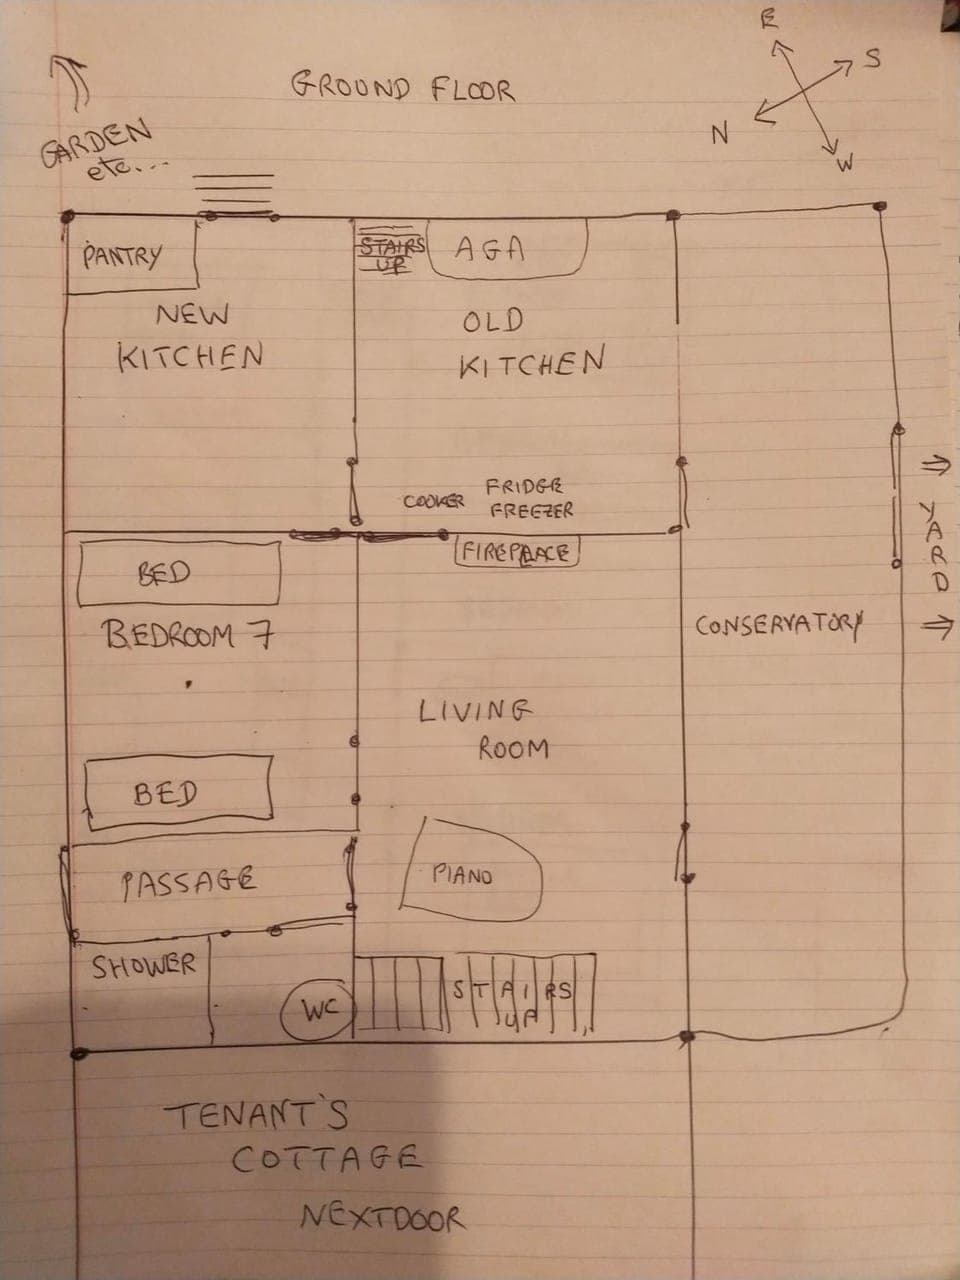 GROUND FLOOR
E
S
N
W
GARDEN
etc...
PANTRY
STAIRS
UP
AGA
NEW
KITCHEN
OLD
KITCHEN
COOKER
FRIDGE
FREEZER
FIREPLACE
BED
BEDROOM 7
CONSERVATORY
⇒
YARD
⇒
LIVING
ROOM
BED
PASSAGE
PIANO
SHOWER
WC
STAIRS
UP
TENANT'S
COTTAGE
NEXTDOOR